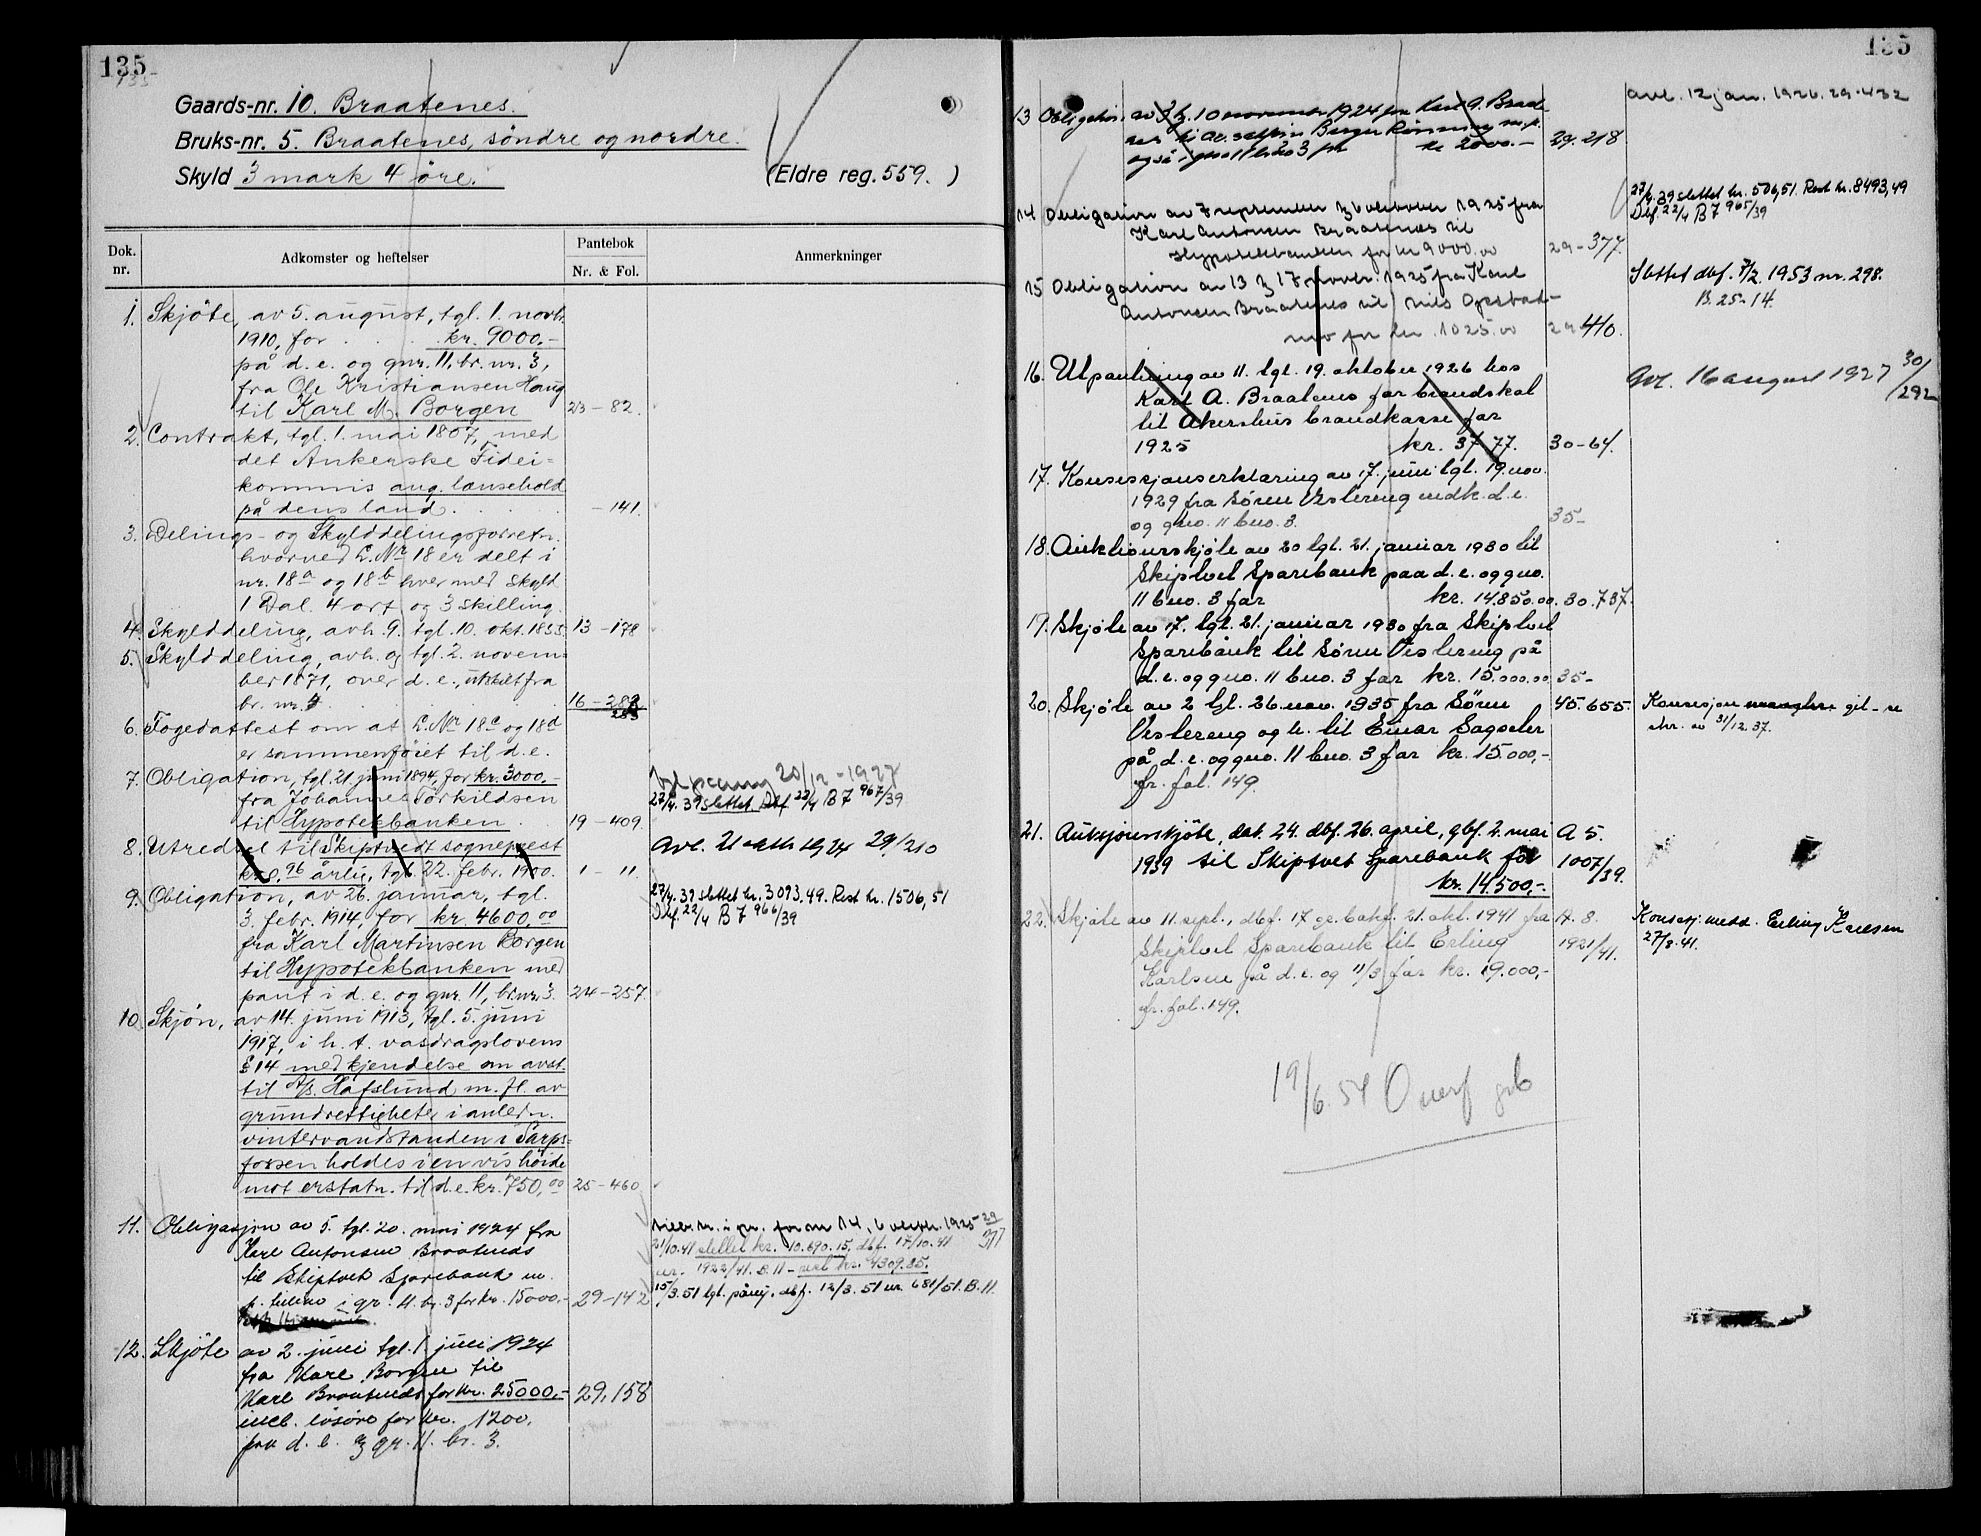 135
Gaards-nr. 10. Braatenes.
Bruks-nr. 5. Braatenes, söndre og nordre.
Skyld 3 mark 4 öre.
(Eldre reg. 559. )
Dok. nr.
Adkomster og heftelser
Pantebok
Nr. & Fol.
Anmerkninger
1. Skjöte, av 5. august, tgl. 1. novb.
1910, for . . . kr. 9000.-
på d. e. og gnr. 11, br. nr. 3,
fra Ole Kristiansen Haug
til Karl M. Borgen 23-82.
2. Contrakt, tgl. 1. mai 1807, med
det Ankerske Fidei=
kommis ang. lænsehold
på dens land . . . -141.
3. Delings- og Skylddelingsforretn.
hvorved L. Nr 18 er delt i
nr. 18a og 18b hver med skyld
1 Dal. 4 ort og 3 skilling.
4. Skylddeling, avh. 9. tgl. 10. okt. 1855. 13-178
5. Skylddeling, avh. og tgl. 2. novem=
ber 1871, over d. e., utskilt fra
br. nr. 4 . . . 16-282
283
6. Fogedattest om at L. Nr 18c og 18d
er sammenföiet til d. e.
7. Obligation, tgl. 21. juni 1894, for kr. 3000.-
fra Johannes Torkildsen
til Hypotekbanken . 19-409.
20/12-1927
27/4.39 slettet Dbf 22/4 B 7 967/39
8. Utredsel til Skiptvedt sogneprest
kr. 0,96 årlig, tgl. 22. febr. 1900. 1-11.
Avl. 1924 29/210
9. Obligation, av 26. januar, tgl.
3. febr. 1914, for kr. 4600,00
fra Karl Martinsen Borgen
til Hypotekbanken med
pant i d. e. og gnr. 11, br. nr. 3. 24-257.
27/4.39 slettet kr. 3093.49. Rest kr. 1506,51
Dbf. 22/4 B 7 966/39
10. Skjön, av 14. juni 1913, tgl. 5. juni
1917, i h. t. vasdragslovens
§ 14 med kjendelse om avst.
til A/s. Hafslund m. fl. av
grundrettigheter i anledn.
vintervandstanden i Sarps=
fossen holdes i en vis höide
mot erstatn. til d. e. kr. 750,00 25-460
11. Obligasjon av 5. tgl. 20. mai 1924 fra
Karl Antonsen Braatenes
til Skiptvet Sparebank m.
p. tillike i gr. 11. br. 3 for kr. 15000.- 29-142
1925 29/377
21/10.41 slettet kr. 10.690.15, dbf. 17/10.41
nr. 1922/41. B.11 - rest kr. 4309.85.
15/3.51 tgl. påny. dbf. 12/3.51 nr. 681/51. B.11.
12. Skjöte av 2. juni tgl. 1. juli 1924
fra Karl Borgen til
Karl Braatenes for kr. 25000,- 29,158
incl. lösöre for kr. 1200.
paa d. e. og gr. 11. br. 3.
135
13 Obligation av 3 tg. 10 november 1924 fra Karl A. Braate
nes til Berger Rönning m. p.
også i gno 11 bno 3 for kr 2000.- 29.218
avl. 12 jan. 1926. 29-432
14 Obligation av 7 september tg 6 oktober 1925 fra
Karl Antonsen Braatenes til
Hypotekbanken for kr 9000.00 29-377.
27/4.39 slettet kr. 506,51. Rest kr. 8493,49
Dbf. 22/4 B 7 965/39
15 Obligation av 13 tg 17 novbr. 1925 fra Karl
Antonsen Braatenes til Nils Opstad-
moe for kr. 1025.00 29 410.
Slettet dbf. 7/2 1953 nr. 298.
B. 25-14.
16. Utpantning av 11. tgl. 19. oktober 1926 hos
Karl A. Braatenes for brandskat
til Akershus brandkasse for
1925 kr. 37 77. 30-64.
Avl. 16 august 1927 30/292
17. Konsesjonserklæring av 17. juni tgl. 19. nov.
1929 fra Søren Vestereng vedk. d. e.
og gno. 11 bno. 3. 35-
18. Auktionsskjøte av 20 tgl. 21. januar 1930 til
Skiptvet Sparebank paa d. e. og gno.
11 bno. 3 for kr. 14.850.00. 30.737.
19. Skjøte av 17. tgl. 21. januar 1930 fra Skiptvet
Sparebank til Søren Vestereng på
d. e. og gno. 11 bno. 3 for kr. 15.000.00 35-
20. Skjøte av 2 tgl. 26. nov. 1935 fra Søren 45.655.
Vestereng og h. til Einar Sagseter
på d. e. og gno. 11 bno. 3 for kr. 15.000,-
fr. fol. 149.
Konsesjon mangler. git
skr. av 31/12.37.
21. Auksjonsskjöte, dat. 24. dbf. 26. april, gbf. 2. mai A 5.
1939 til Skiptvet Sparebank for 1007/39.
kr. 14.500,-
22. Skjøte av 11. sept., dbf. 17 21. okt. 1941 fra A. 8.
Skiptvet Sparebank til Erling 1921/41.
Karlsen på d. e. og 11/3 for kr. 19.000,-
fr. fol. 149.
Konsesj. medd. Erling Karlsen
27/8.41.
19/6.54 Overf